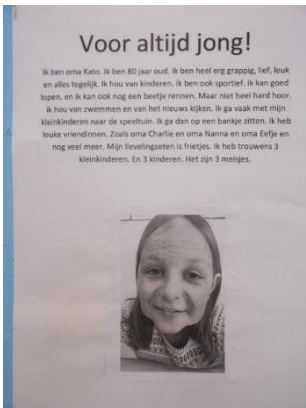 Voor altijd jong!
Ik ben oma Kato. Ik ben 80 jaar oud. Ik ben heel erg grappig, lief, leuk
en alles tegelijk. Ik hou van kinderen. Ik ben ook sportief. ik kan goed
lopen. en ik kan ook nog een beetje rennen. Maar niet heel hard hoor.
ik hou van zwemmen en van het nieuws kijken. Ik ga vaak met mijn
kleinkinderen naar de speeltuin. Ik ga dan op een bankje zitten. Ik heb
leuke vriendinnen. Zoals oma Charlie en oma Nanna en oma Eefje en
nog veel meer. Mijn lievelingseten is frietjes. Ik heb trouwens 3
kleinkinderen. En 3 kinderen. Het zijn 3 meisjes.